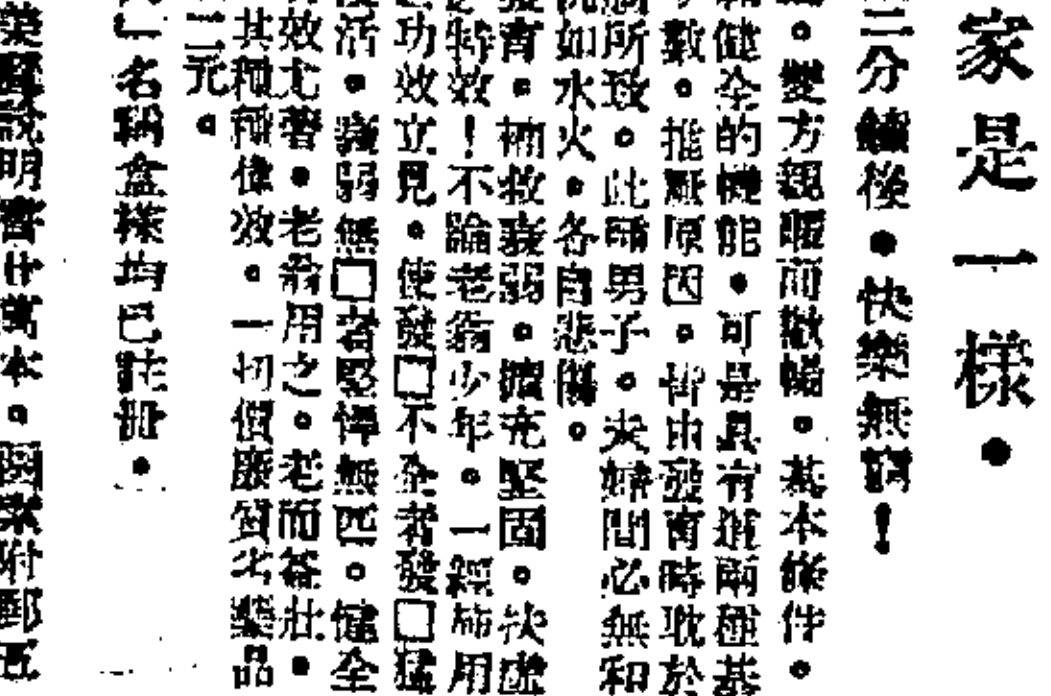 家是一樣。
二分鐘後。快樂無窮！
。雙方親暱而歡暢。基本條件。
健全的機能。可是具有這兩種基
數。推厥原因。皆由發育時耽於
所致。此種男子。夫婦間必無和
如水火。各自悲傷。
發育。補救衰弱。擴充堅固。扶虛
特效！不論老翁少年。一經施用
功效立見。使發□不全者發□猛
復活。衰弱無□者堅偉無匹。健全
效尤著。老翁用之。老而益壯。
其種種偉效。一切價廉質劣藥品
二元。
」名稱盒樣均已註冊。
說明書廿萬本。函索附郵五